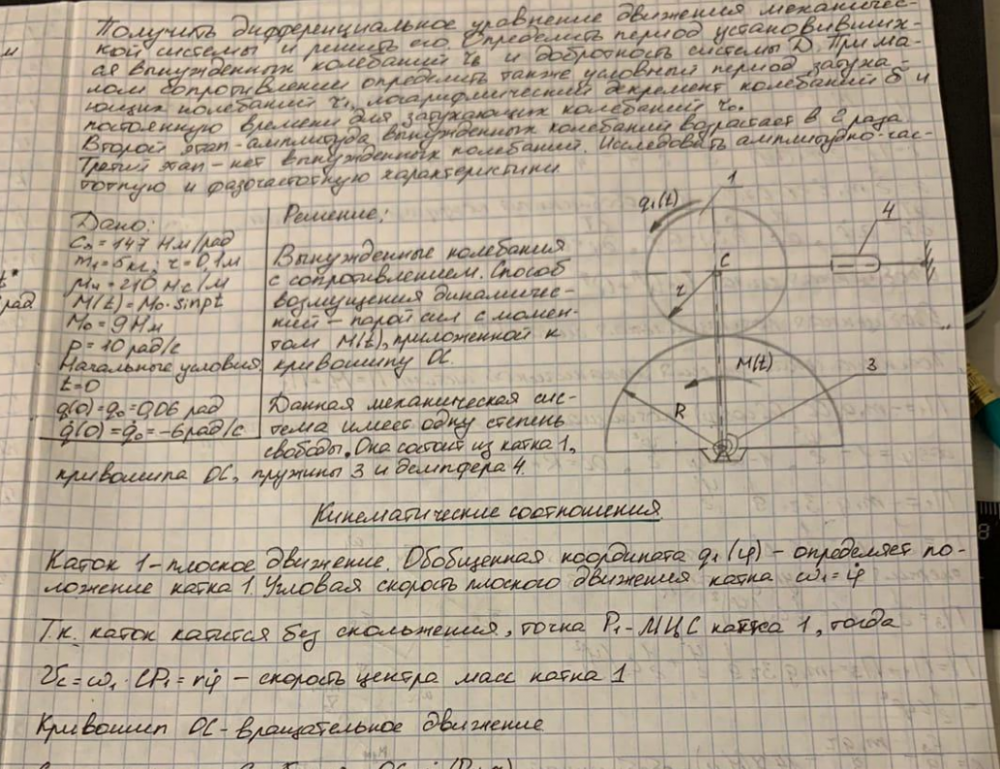 Получить дифференциальное уравнение движения механичес-
кой системы и решить его. Определить период установивших-
ся вынужденных колебаний τв и добротность системы D. При ма-
лом сопротивлении определить также условный период затуха-
ющих колебаний τ1, логарифмический декремент колебаний δ и
постоянную времени для затухающих колебаний τ0.
Второй этап - амплитуда вынужденных колебаний возрастает в 2 раза
Третий этап - нет вынужденных колебаний. Исследовать амплитудно-час-
тотную и фазочастотную характеристики
Дано:
Cп = 147 Нм/рад
m1 = 5 кг; r = 0,1 м
μ4 = 210 Нс/м
M(t) = M0·sinpt
M0 = 9 Нм
p = 10 рад/с
Начальные условия
t=0
q(0) = q0 = 0,06 рад
q̇(0) = q̇0 = -6 рад/с
Решение:
Вынужденные колебания
с сопротивлением. Способ
возмущения динамичес-
кий - парой сил с момен-
том M(t), приложенной к
кривошипу OC.
Данная механическая сис-
тема имеет одну степень
свободы. Она состоит из катка 1,
кривошипа OC, пружины 3 и демпфера 4.
q1(t)
1
4
C
r
M(t)
3
R
Кинематические соотношения
Каток 1 - плоское движение. Обобщенная координата q1(φ) - определяет по-
ложение катка 1. Угловая скорость плоского движения катка ω1 = φ̇
Т.к. каток катится без скольжения, точка P1 - МЦС катка 1, тогда
Vc = ω1 · CP1 = rφ̇ - скорость центра масс катка 1
Кривошип OC - вращательное движение
рад